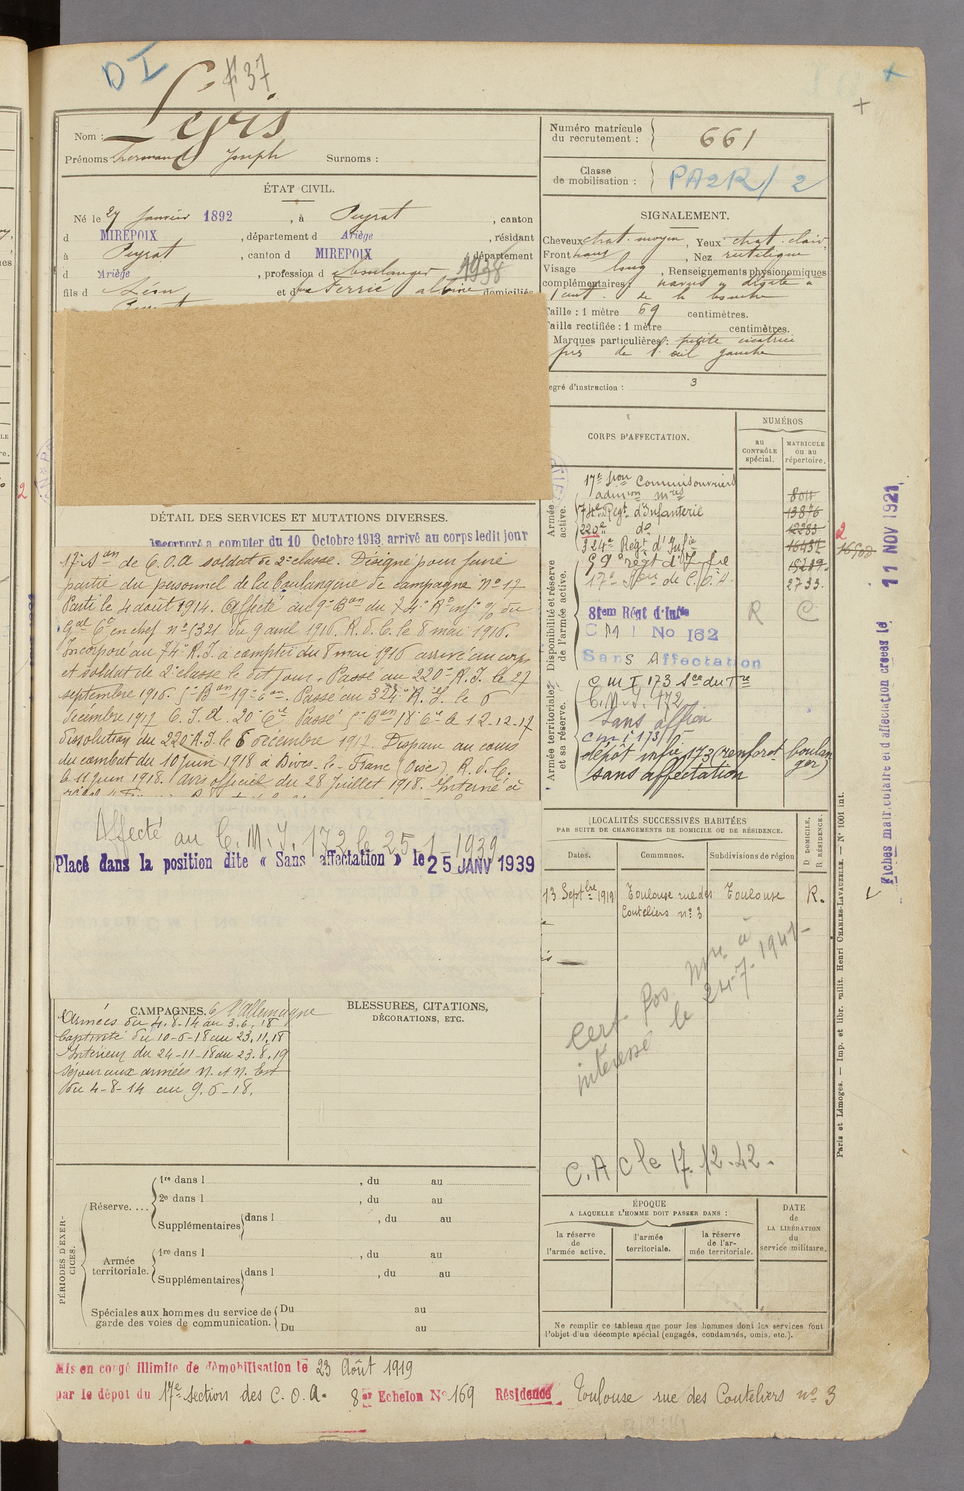 DI
#37
Nom : Lévis
Prénoms Joseph Surnoms :
ÉTAT CIVIL.
Né le 27 Janvier 1892, à Peyrat, canton
d MIREPOIX, département d Ariège, résidant
à Peyrat, canton d MIREPOIX, département
d Ariège, profession d boulanger 1938
fils d Léon et d domiciliés
DÉTAIL DES SERVICES ET MUTATIONS DIVERSES.
Incorporé à compter du 10 Octobre 1913, arrivé au corps ledit jour
17e Son de C.O.A soldat de 2e classe. Désigné pour faire
partie du personnel de la boulangerie de campagne No 17
Parti le 4 août 1914. Affecté au 9e Bon du 74e Rt inf. % du
Gal Ct en chef no 1321 du 9 avril 1916. R.d.C. le 8 mai 1916.
Incorporé au 74e R.I. à compter du 8 mai 1916 arrivé au corps
et soldat de 2e classe le dit jour. Passé au 220e R.I. le 27
septembre 1916. 5e Bon 19e Cie. Passé au 324e R.I. le 6
décembre 1917 C.I.d. 20e Cie Passé 5e Bon 18e Cie le 12-12-17
dissolution du 220 R.I. le 6 décembre 1917. Disparu au cours
du combat du 10 juin 1918 à Dives-le-Franc (Oise). R.d.C.
le 11 juin 1918. (avis officiel du 28 Juillet 1918. Interné à
Affecté au C.M.I. 172 le 25-1-1939
Placé dans la position dite « Sans affectation » le 25 JANV 1939
CAMPAGNES. l'allemagne
Armées du 4.8.14 au 3.6.18
Captivité du 10-6-18 au 23.11.18
Intérieur du 24-11-18 au 23.8.19
Séjour aux armées N. et N. Est
du 4-8-14 au 9.6-18.
BLESSURES, CITATIONS,
DÉCORATIONS, ETC.
PÉRIODES D'EXERCICES.
Réserve....
1re dans l , du au
2e dans l , du au
Supplémentaires dans l , du au
Armée territoriale.
1re dans l , du au
Supplémentaires dans l , du au
Spéciales aux hommes du service de garde des voies de communication.
Du au
Du au
Mis en congé illimité de démobilisation le 23 Août 1919
par le dépôt du 17e section des C.O.A. 8er Echelon No 169 Résidence Toulouse rue des Couteliers no 3
Numéro matricule
du recrutement : 661
Classe
de mobilisation : PA2R/2
SIGNALEMENT.
Cheveux chat. moyen, Yeux chat. clair
Front haut, Nez rectiligne
Visage long, Renseignements physionomiques
complémentaires : naevus à
1 cent. de la bouche
Taille : 1 mètre 69 centimètres.
Taille rectifiée : 1 mètre centimètres.
Marques particulières : petite cicatrice
près de l'œil gauche
Degré d'instruction : 3
CORPS D'AFFECTATION.
NUMÉROS
AU CONTRÔLE SPÉCIAL.
MATRICULE OU AU RÉPERTOIRE.
Armée active.
17e Son Commis ouvriers
admon mres
74e Régt d'Infanterie
220e do
324e Régt d'Infie
Disponibilité et réserve de l'armée active.
59e régt d'Infie
17e Son de C.O.A.
81em Régt d'Infie
C M I No 162
Sans Affectation
R C
2733.
Armée territoriale et sa réserve.
C M I 173 Son du Tre
C.M.I. 172
Sans affon
c m i 173/5
dépôt infie 173 (renfort boulanger)
sans affectation
LOCALITÉS SUCCESSIVES HABITÉES
PAR SUITE DE CHANGEMENTS DE DOMICILE OU DE RÉSIDENCE.
Dates. Communes. Subdivisions de région
D DOMICILE, R RÉSIDENCE.
13 Septbre 1919 Toulouse rue des Toulouse R.
Couteliers no 3
Cert. pos. mre à
intéressé le 24-7-1941-
C.A/C le 17.12.42.
ÉPOQUE
A LAQUELLE L'HOMME DOIT PASSER DANS :
la réserve de l'armée active.
l'armée territoriale.
la réserve de l'armée territoriale.
DATE de LA LIBÉRATION du service militaire.
Ne remplir ce tableau que pour les hommes dont les services font
l'objet d'un décompte spécial (engagés, condamnés, omis, etc.).
Paris et Limoges. — Imp. et libr. milit. Henri CHARLES-LAVAUZELLE. — N° 1001 int.
Fiches matriculaire et d'affectation créées le 11 NOV 1921